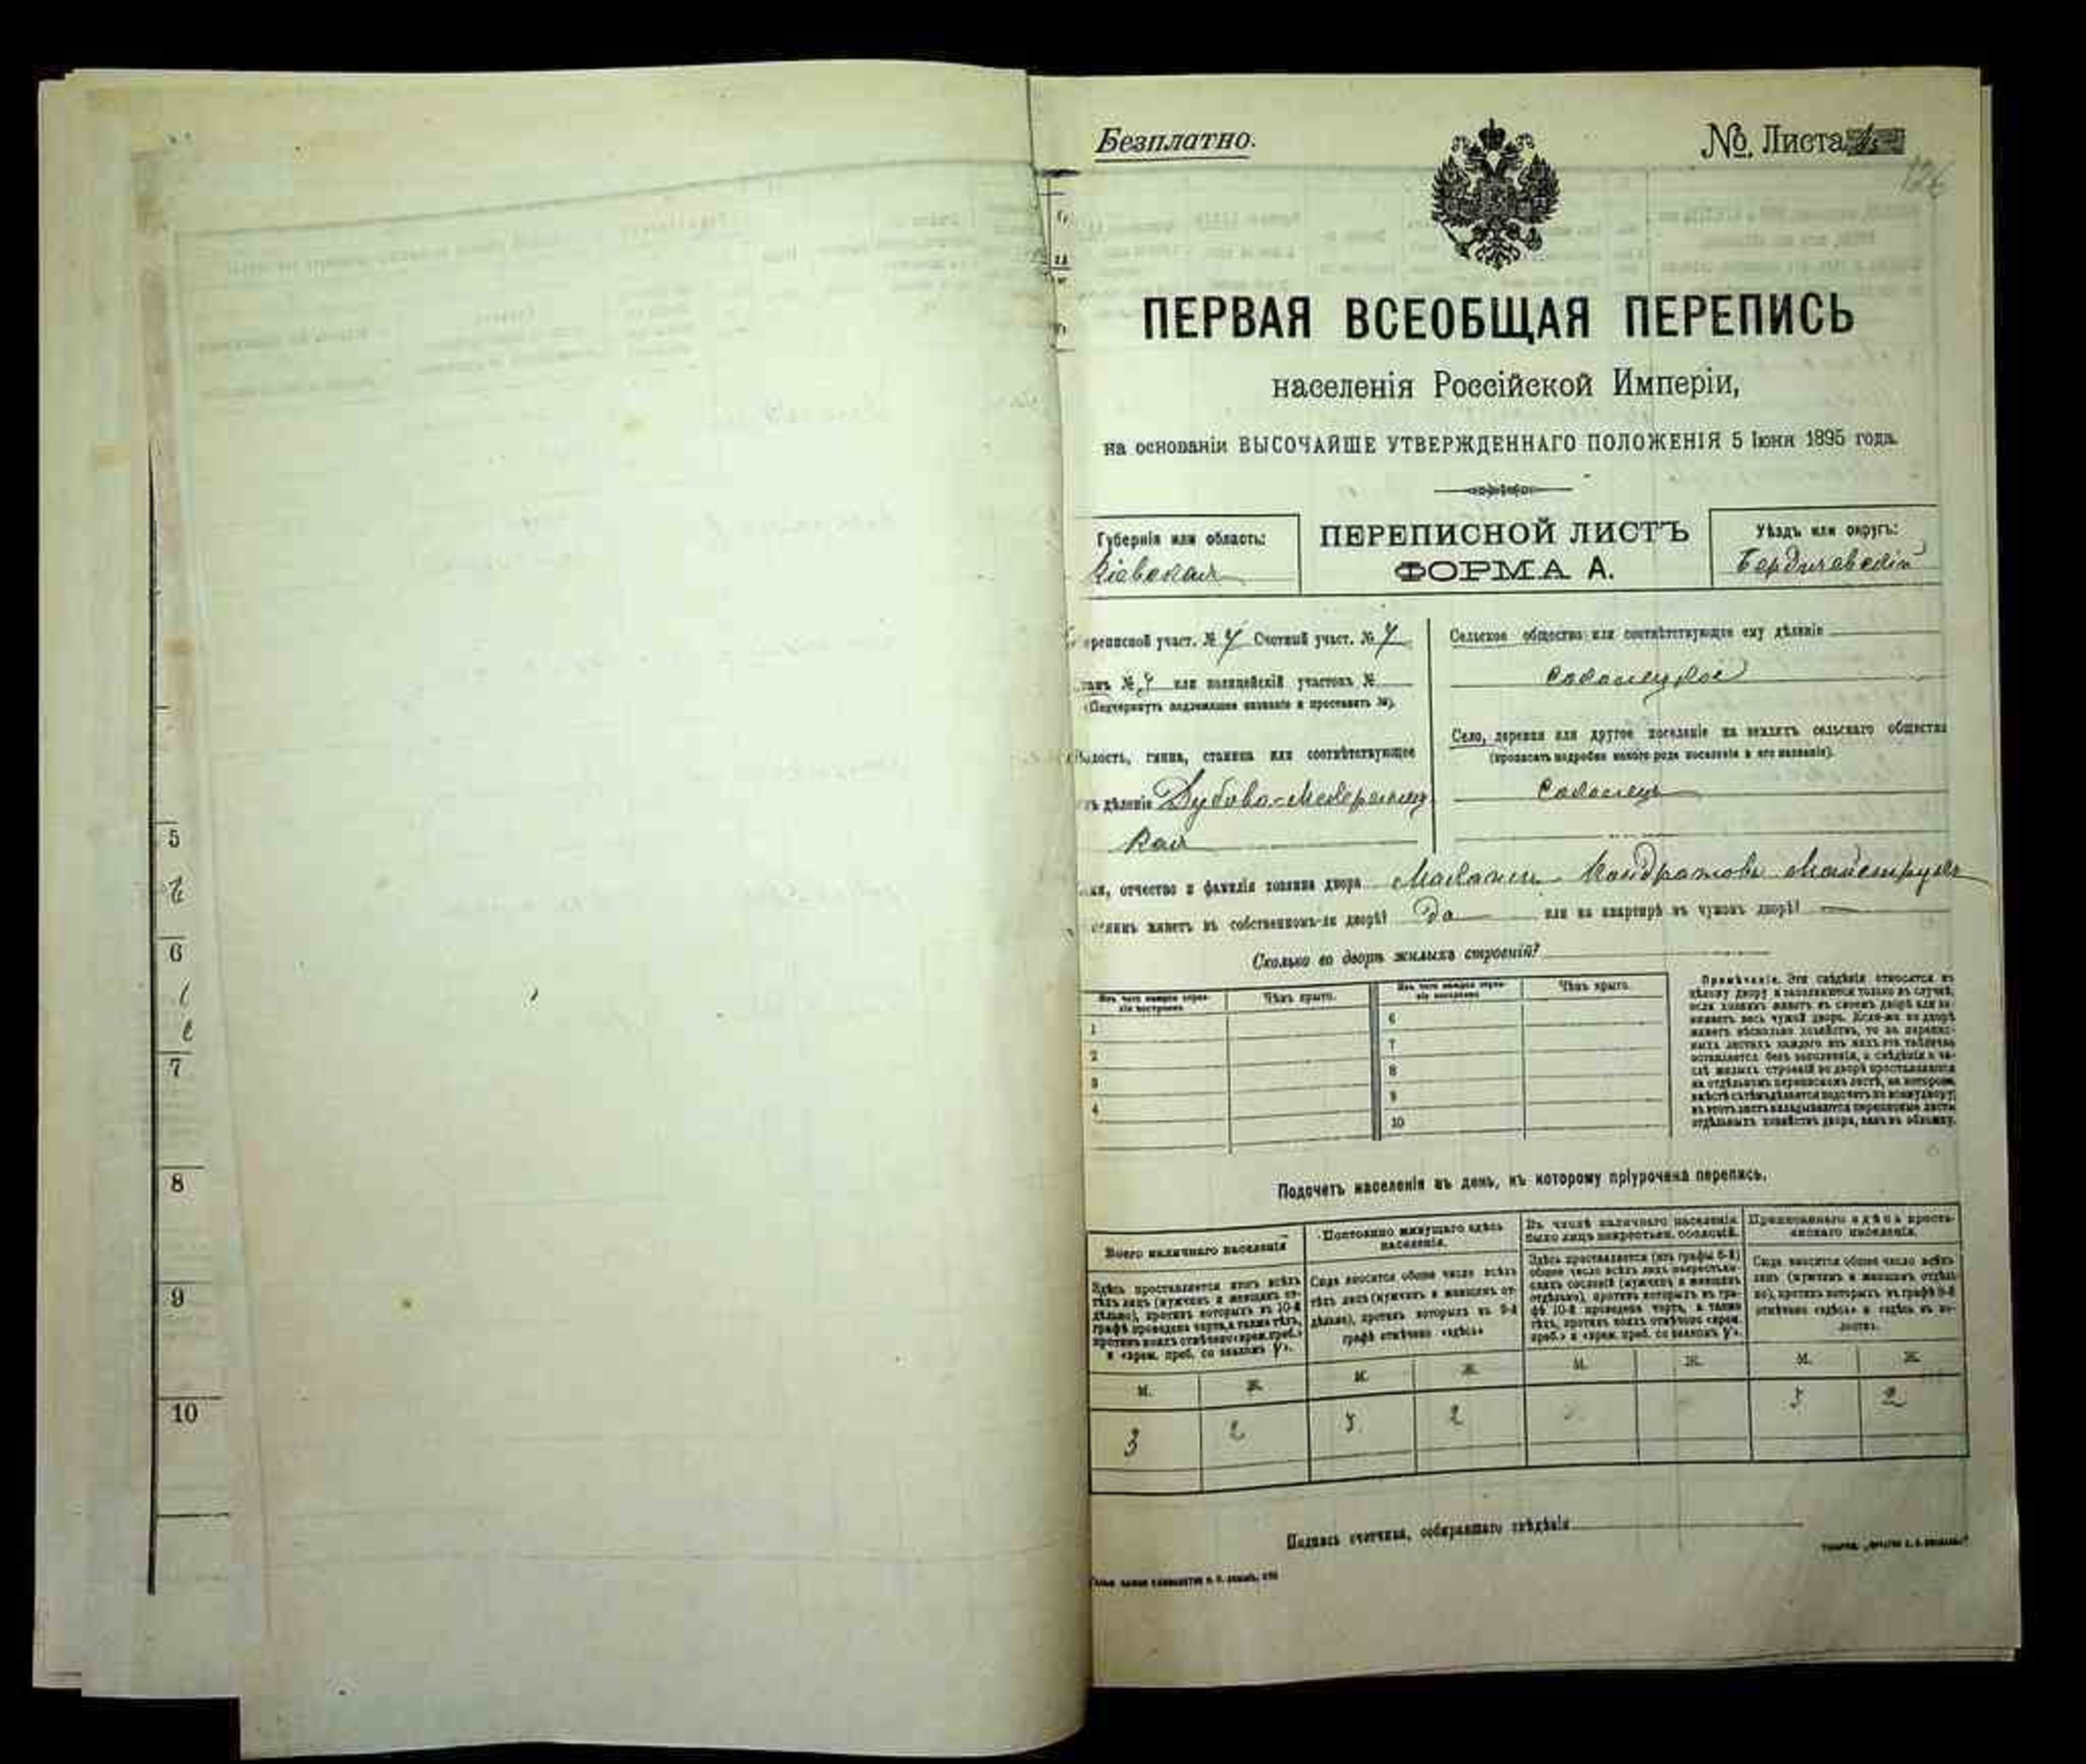 5
6
7
8
9
10
Безплатно.
№ Листа
126
ПЕРВАЯ ВСЕОБЩАЯ ПЕРЕПИСЬ
населенія Россійской Имперіи,
на основаніи ВЫСОЧАЙШЕ УТВЕРЖДЕННАГО ПОЛОЖЕНІЯ 5 Іюня 1895 года.
Губернія или область:
Кіевская
ПЕРЕПИСНОЙ ЛИСТЪ
ФОРМА А.
Уѣздъ или округъ:
Бердичевскій
Переписной участ. № Счетный участ. №
Станъ № или полицейскій участокъ №
(Подчеркнуть надлежащее названіе и проставить №).
Волость, гмина, станица или соотвѣтствующее
имъ дѣленіе Дубово-Махаринец
кая
Сельское общество или соотвѣтствующее ему дѣленіе
Село, деревня или другое поселеніе на земляхъ сельскаго общества
(прописать подробно какого рода поселеніе и его названіе).
Имя, отчество и фамилія хозяина двора Кондратовъ
Хозяинъ живетъ въ собственномъ-ли дворѣ? да или на квартирѣ въ чужомъ дворѣ?
Сколько во дворѣ жилыхъ строеній?
Изъ чего каждое строеніе построено.
Чѣмъ крыто.
Изъ чего каждое строеніе построено
Чѣмъ крыто.
1
2
3
4
6
7
8
9
10
Примѣчаніе. Эти свѣдѣнія относятся къ
цѣлому двору и заполняются только въ случаѣ,
если хозяинъ живетъ въ своемъ дворѣ или за-
нимаетъ весь чужой дворъ. Если-же во дворѣ
живетъ нѣсколько хозяйствъ, то въ перепис-
ныхъ листахъ каждаго изъ нихъ эта табличка
оставляется безъ заполненія, а свѣдѣнія о чи-
слѣ жилыхъ строеній во дворѣ проставляются
на отдѣльномъ переписномъ листѣ, на которомъ
вмѣстѣ съ тѣмъ дѣлается подсчетъ по всему двору;
въ этотъ листъ вкладываются переписные листы
отдѣльныхъ хозяйствъ двора, какъ въ обложку.
Подсчетъ населенія въ день, къ которому пріурочена перепись.
Всего наличнаго населенія
Постоянно живущаго здѣсь населенія.
Въ числѣ наличнаго населенія было лицъ некрестьян. сословій.
Приписаннаго здѣсь крестьянскаго населенія.
Здѣсь проставляется итогъ всѣхъ
тѣхъ лицъ (мужчинъ и женщинъ от-
дѣльно), противъ которыхъ въ 10-й
графѣ проведена черта, а также тѣхъ,
противъ коихъ отмѣчено «врем. преб.»
и «врем. преб. со знакомъ V».
Сюда вносится общее число всѣхъ
тѣхъ лицъ (мужчинъ и женщинъ от-
дѣльно), противъ которыхъ въ 9-й
графѣ отмѣчено «здѣсь»
Здѣсь проставляется (изъ графы 6-й)
общее число всѣхъ лицъ некрестьян-
скихъ сословій (мужчинъ и женщинъ
отдѣльно), противъ которыхъ въ гра-
фѣ 10-й проведена черта, а также
тѣхъ, противъ коихъ отмѣчено «врем.
преб.» и «врем. преб. со знакомъ V».
Сюда вносится общее число всѣхъ
лицъ (мужчинъ и женщинъ отдѣль-
но), противъ которыхъ въ графѣ 8-й
отмѣчено «здѣсь» и «здѣсь въ во-
лости».
М. Ж. М. Ж. М. Ж. М. Ж.
3 2 3 2 3 2
Подпись счетчика, собиравшаго свѣдѣнія